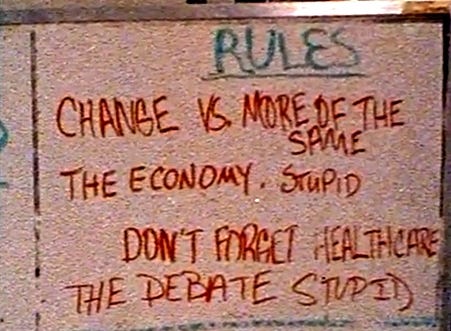 RULES
CHANGE VS. MORE OF THE
SAME
THE ECONOMY. STUPID
DON'T FORGET HEALTHCARE
THE DEBATE STUPID